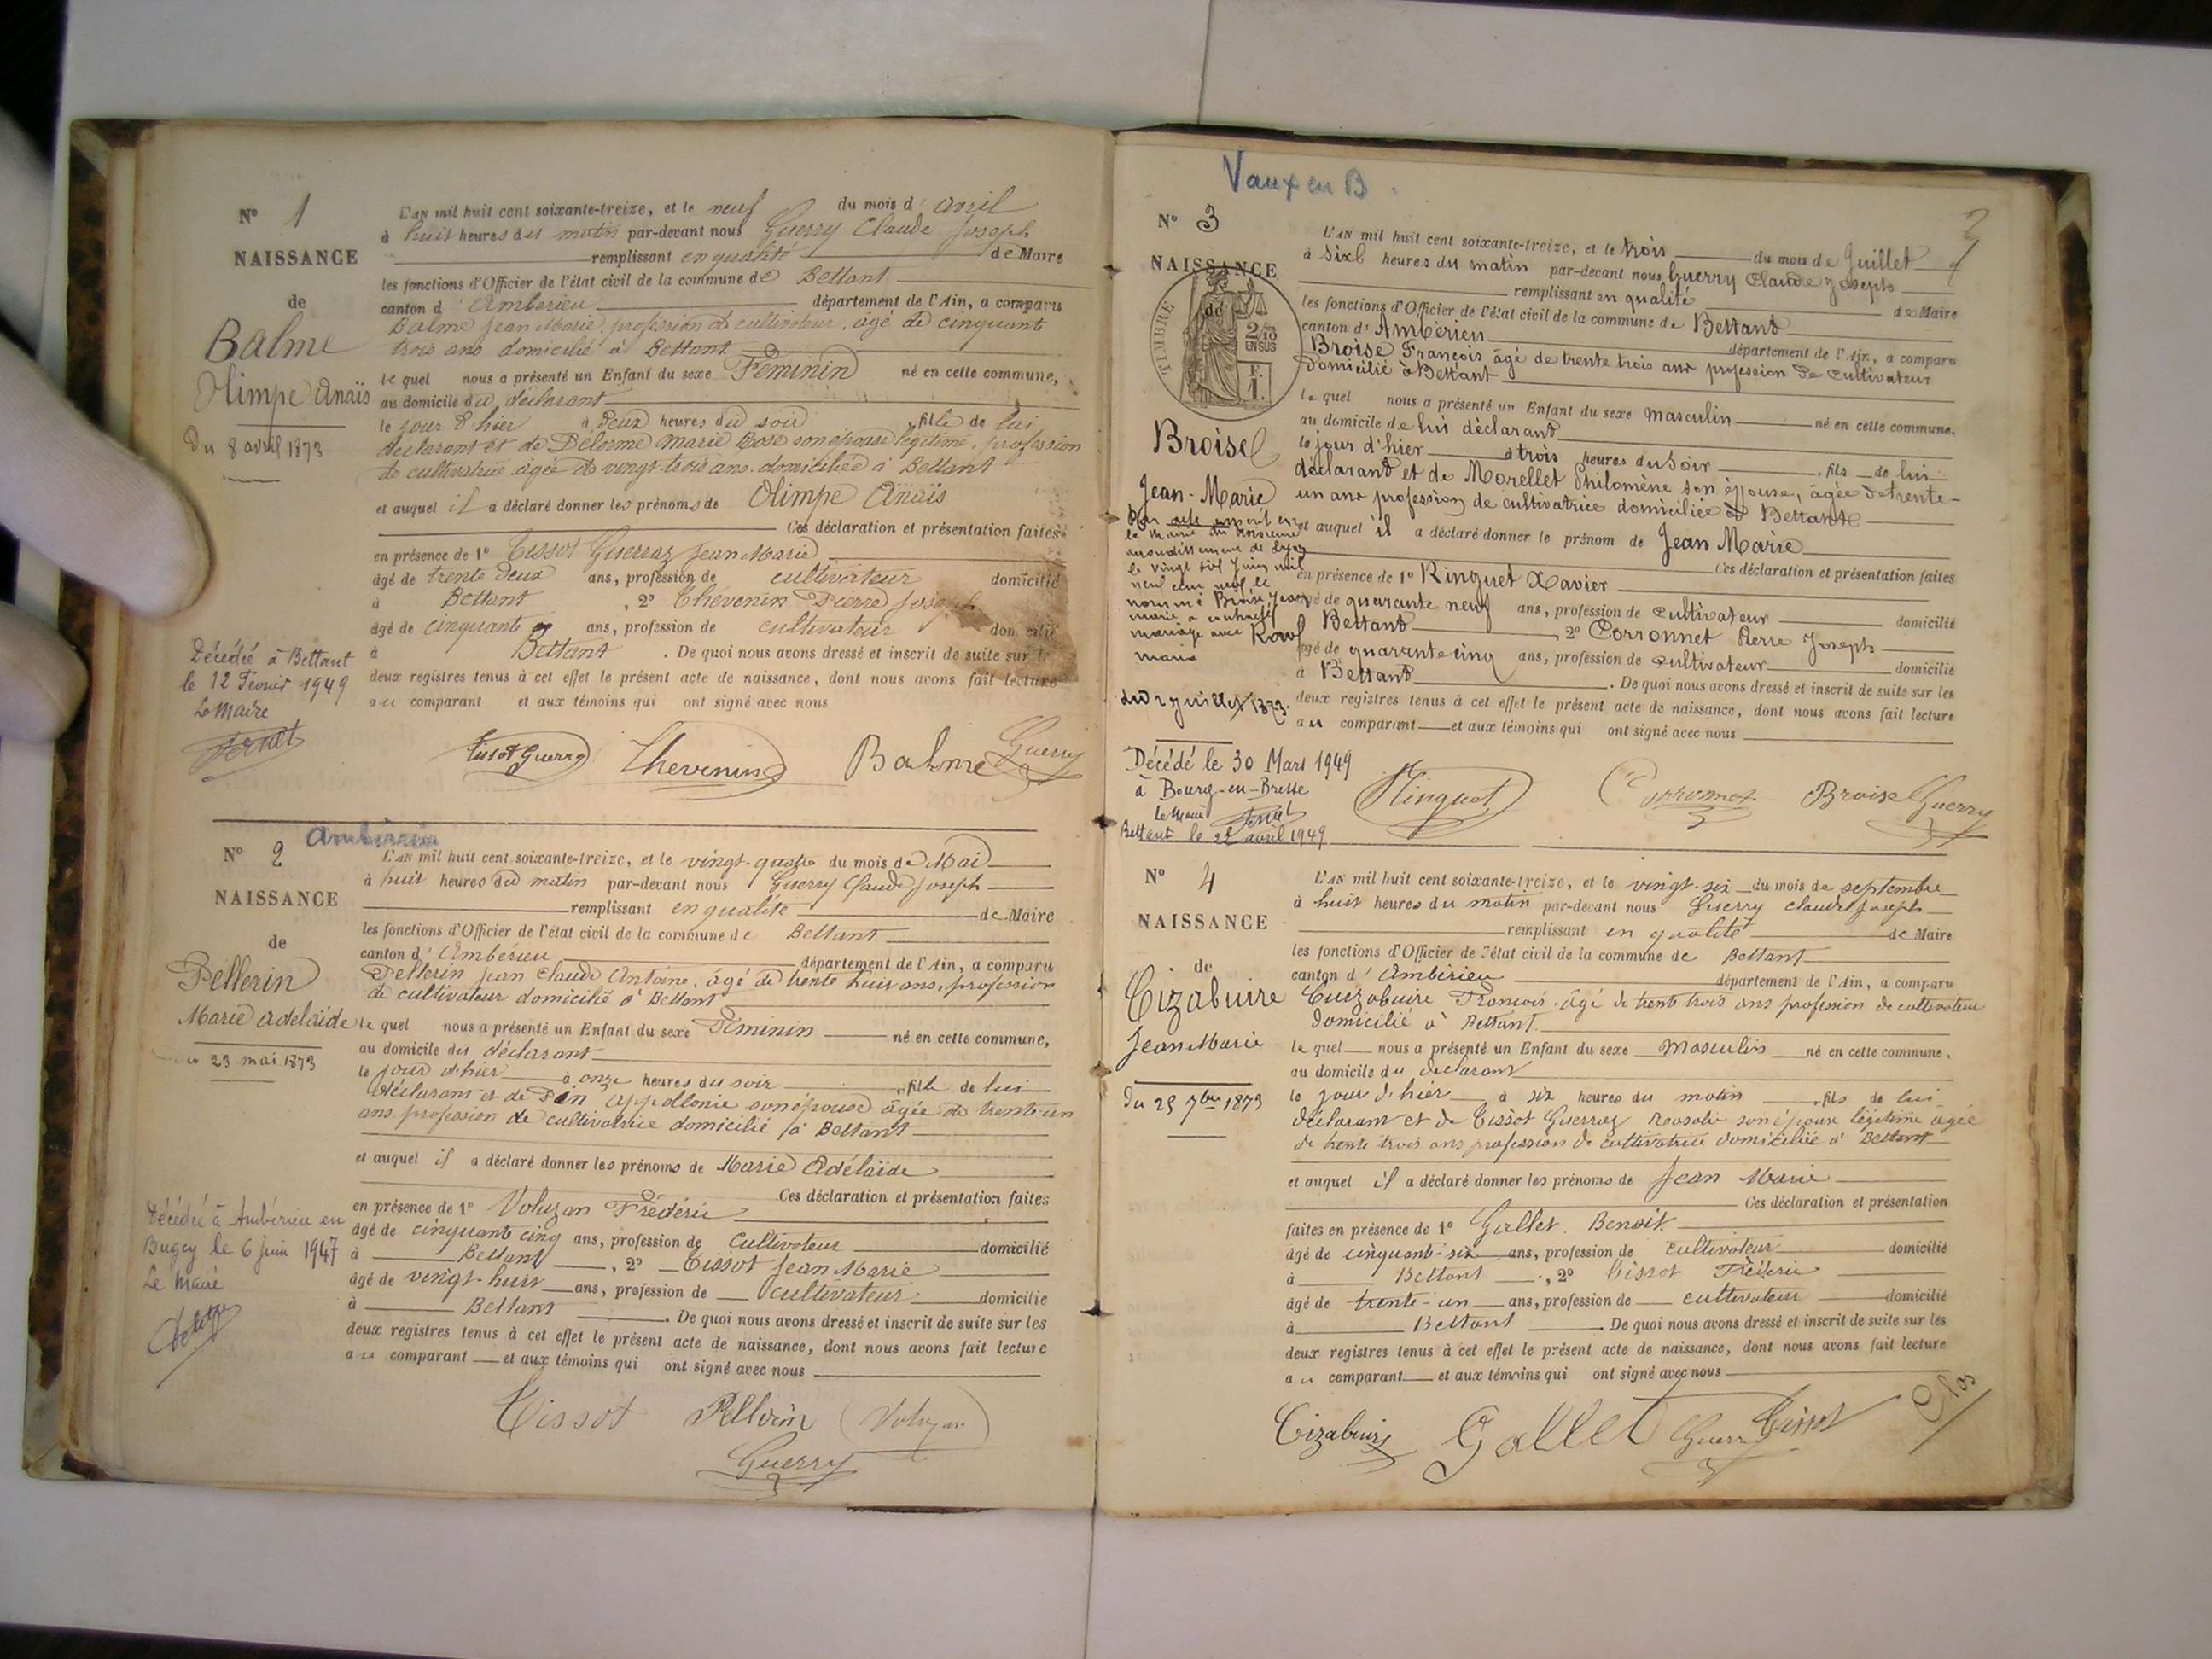 N° 1
NAISSANCE
de
Balme
Olimpe Anaïs
Du 8 avril 1873
L'AN mil huit cent soixante-treize, et le neuf du mois d' avril
à huit heures du matin par-devant nous Guerry Claude Joseph
remplissant en qualité de Maire
les fonctions d'Officier de l'état civil de la commune de Bettant
canton d' Ambérieu département de l'Ain, a comparu
Balme Jean Marie, profession de cultivateur, agé de cinquant
trois ans domicilié à Bettant
le quel nous a présenté un Enfant du sexe Féminin né en cette commune,
au domicile du déclarant
le jour d'hier à deux heures du soir, fille de lui
déclarant et de Delorme Marie Rose son épouse légitime, profession
de cultivatrice agée de vingt-trois ans domiciliée à Bettant
et auquel il a déclaré donner les prénoms de Olimpe Anaïs
Ces déclaration et présentation faites
en présence de 1° Tissot Guerraz Jean Marie
âgé de trente deux ans, profession de cultivateur domicilié
à Bettant, 2° Thevenin Pierre Joseph
âgé de cinquante ans, profession de cultivateur domicilié
à Bettant. De quoi nous avons dressé et inscrit de suite sur les
deux registres tenus à cet effet le présent acte de naissance, dont nous avons fait lecture
au comparant et aux témoins qui ont signé avec nous
Décédée à Bettant
le 12 Fevrier 1949
Le Maire
Tissot Guerra Thevenin Balme Guerry
Ambérieu
N° 2
NAISSANCE
de
Pellerin
Marie Adelaïde
23 mai 1873
L'AN mil huit cent soixante-treize, et le vingt-quatre du mois de Mai
à huit heures du matin par-devant nous Guerry Claude Joseph
remplissant en qualité de Maire
les fonctions d'Officier de l'état civil de la commune de Bettant
canton d' Ambérieu département de l'Ain, a comparu
Pellerin Jean Claude Antoine, âgé de trente huit ans, profession
de cultivateur domicilié à Bettant
le quel nous a présenté un Enfant du sexe Féminin né en cette commune,
au domicile du déclarant
le jour d'hier à onze heures du soir, fille de lui
déclarant et de Appollonie son épouse âgée de trente un
ans profession de cultivatrice domicilié à Bettant
et auquel il a déclaré donner les prénoms de Marie Adélaïde
Ces déclaration et présentation faites
en présence de 1° Voluzan Frédéric
âgé de cinquante cinq ans, profession de Cultivateur domicilié
à Bettant, 2° Tissot Jean Marie
âgé de vingt-huit ans, profession de Cultivateur domicilié
à Bettant. De quoi nous avons dressé et inscrit de suite sur les
deux registres tenus à cet effet le présent acte de naissance, dont nous avons fait lecture
au comparant et aux témoins qui ont signé avec nous
Décédée à Ambérieu en
Bugey le 6 Juin 1947
Le Maire
Tissot Pellerin Voluzan
Guerry
Vaux en B.
N° 3
NAISSANCE
de
TIMBRE
2/10
EN SUS
F.
1.
Broise
Jean-Marie
L'AN mil huit cent soixante-treize, et le trois du mois de Juillet
à six heures du matin par-devant nous Guerry Claude Joseph
remplissant en qualité de Maire
les fonctions d'Officier de l'état civil de la commune de Bettant
canton d' Ambérieu département de l'Ain, a comparu
Broise François âgé de trente trois ans profession de cultivateur
domicilié à Bettant
le quel nous a présenté un Enfant du sexe masculin né en cette commune,
au domicile de lui déclarant
le jour d'hier à trois heures du soir, fils de lui
déclarant et de Morellet Philomène son épouse, âgée de trente-
un ans profession de cultivatrice domiciliée à Bettant
et auquel il a déclaré donner le prénom de Jean Marie
Ces déclaration et présentation faites
en présence de 1° Ringuet Xavier
âgé de quarante neuf ans, profession de cultivateur domicilié
Bettant, 2° Corronnet Pierre Joseph
âgé de quarante cinq ans, profession de cultivateur domicilié
à Bettant. De quoi nous avons dressé et inscrit de suite sur les
deux registres tenus à cet effet le présent acte de naissance, dont nous avons fait lecture
au comparant et aux témoins qui ont signé avec nous
Par acte inscrit en
la Mairie du troisième
arrondissement de Lyon
le vingt six Juin mil
neuf cent neuf le
nommé Broise Jean
marie a contracté
mariage avec
maria
du 2 juillet 1873.
Décédé le 30 Mars 1949
à Bourg-en-Bresse
Le Maire
Bettant le 22 avril 1949
Ringuet Corronnet Broise Guerry
N° 4
NAISSANCE
de
Cizabuire
Jean Marie
du 25 7bre 1873
L'AN mil huit cent soixante-treize, et le vingt-six du mois de septembre
à huit heures du matin par-devant nous Guerry Claude Joseph
remplissant en qualité de Maire
les fonctions d'Officier de l'état civil de la commune de Bettant
canton d' Ambérieu département de l'Ain, a comparu
Cuizabuire François âgé de trente trois ans profession de cultivateur
domicilié à Bettant
le quel nous a présenté un Enfant du sexe Masculin né en cette commune,
au domicile du déclarant
le jour d'hier à six heures du matin, fils de lui
déclarant et de Tissot Guerraz Rosalie son épouse légitime agée
de trente trois ans profession de cultivatrice domiciliée à Bettant
et auquel il a déclaré donner les prénoms de Jean Marie
Ces déclaration et présentation
faites en présence de 1° Gallet Benoit
âgé de cinquante-six ans, profession de cultivateur domicilié
à Bettant, 2° Tissot Fréderic
âgé de trente-un ans, profession de cultivateur domicilié
à Bettant. De quoi nous avons dressé et inscrit de suite sur les
deux registres tenus à cet effet le présent acte de naissance, dont nous avons fait lecture
au comparant et aux témoins qui ont signé avec nous
Cizabuire Gallet Guerry Tissot